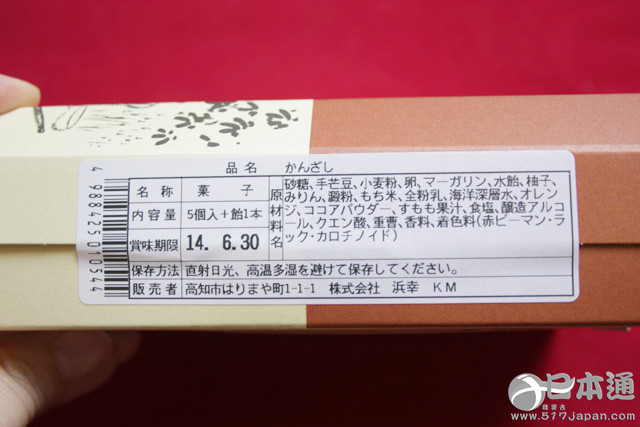 品名 かんざし
名称 菓子
内容量 5個入+飴1本
賞味期限 14. 6.30
原材料名
砂糖、手芒豆、小麦粉、卵、マーガリン、水飴、柚子、
みりん、澱粉、もち米、全粉乳、海洋深層水、オレン
ジ、ココアパウダー、すもも果汁、食塩、醸造アルコ
ール、クエン酸、重曹、香料、着色料(赤ピーマン・ラ
ック・カロチノイド)
保存方法 直射日光、高温多湿を避けて保存してください。
販売者 高知市はりまや町1-1-1 株式会社 浜幸 KM
4 988425 010544
日本通
www.517japan.com